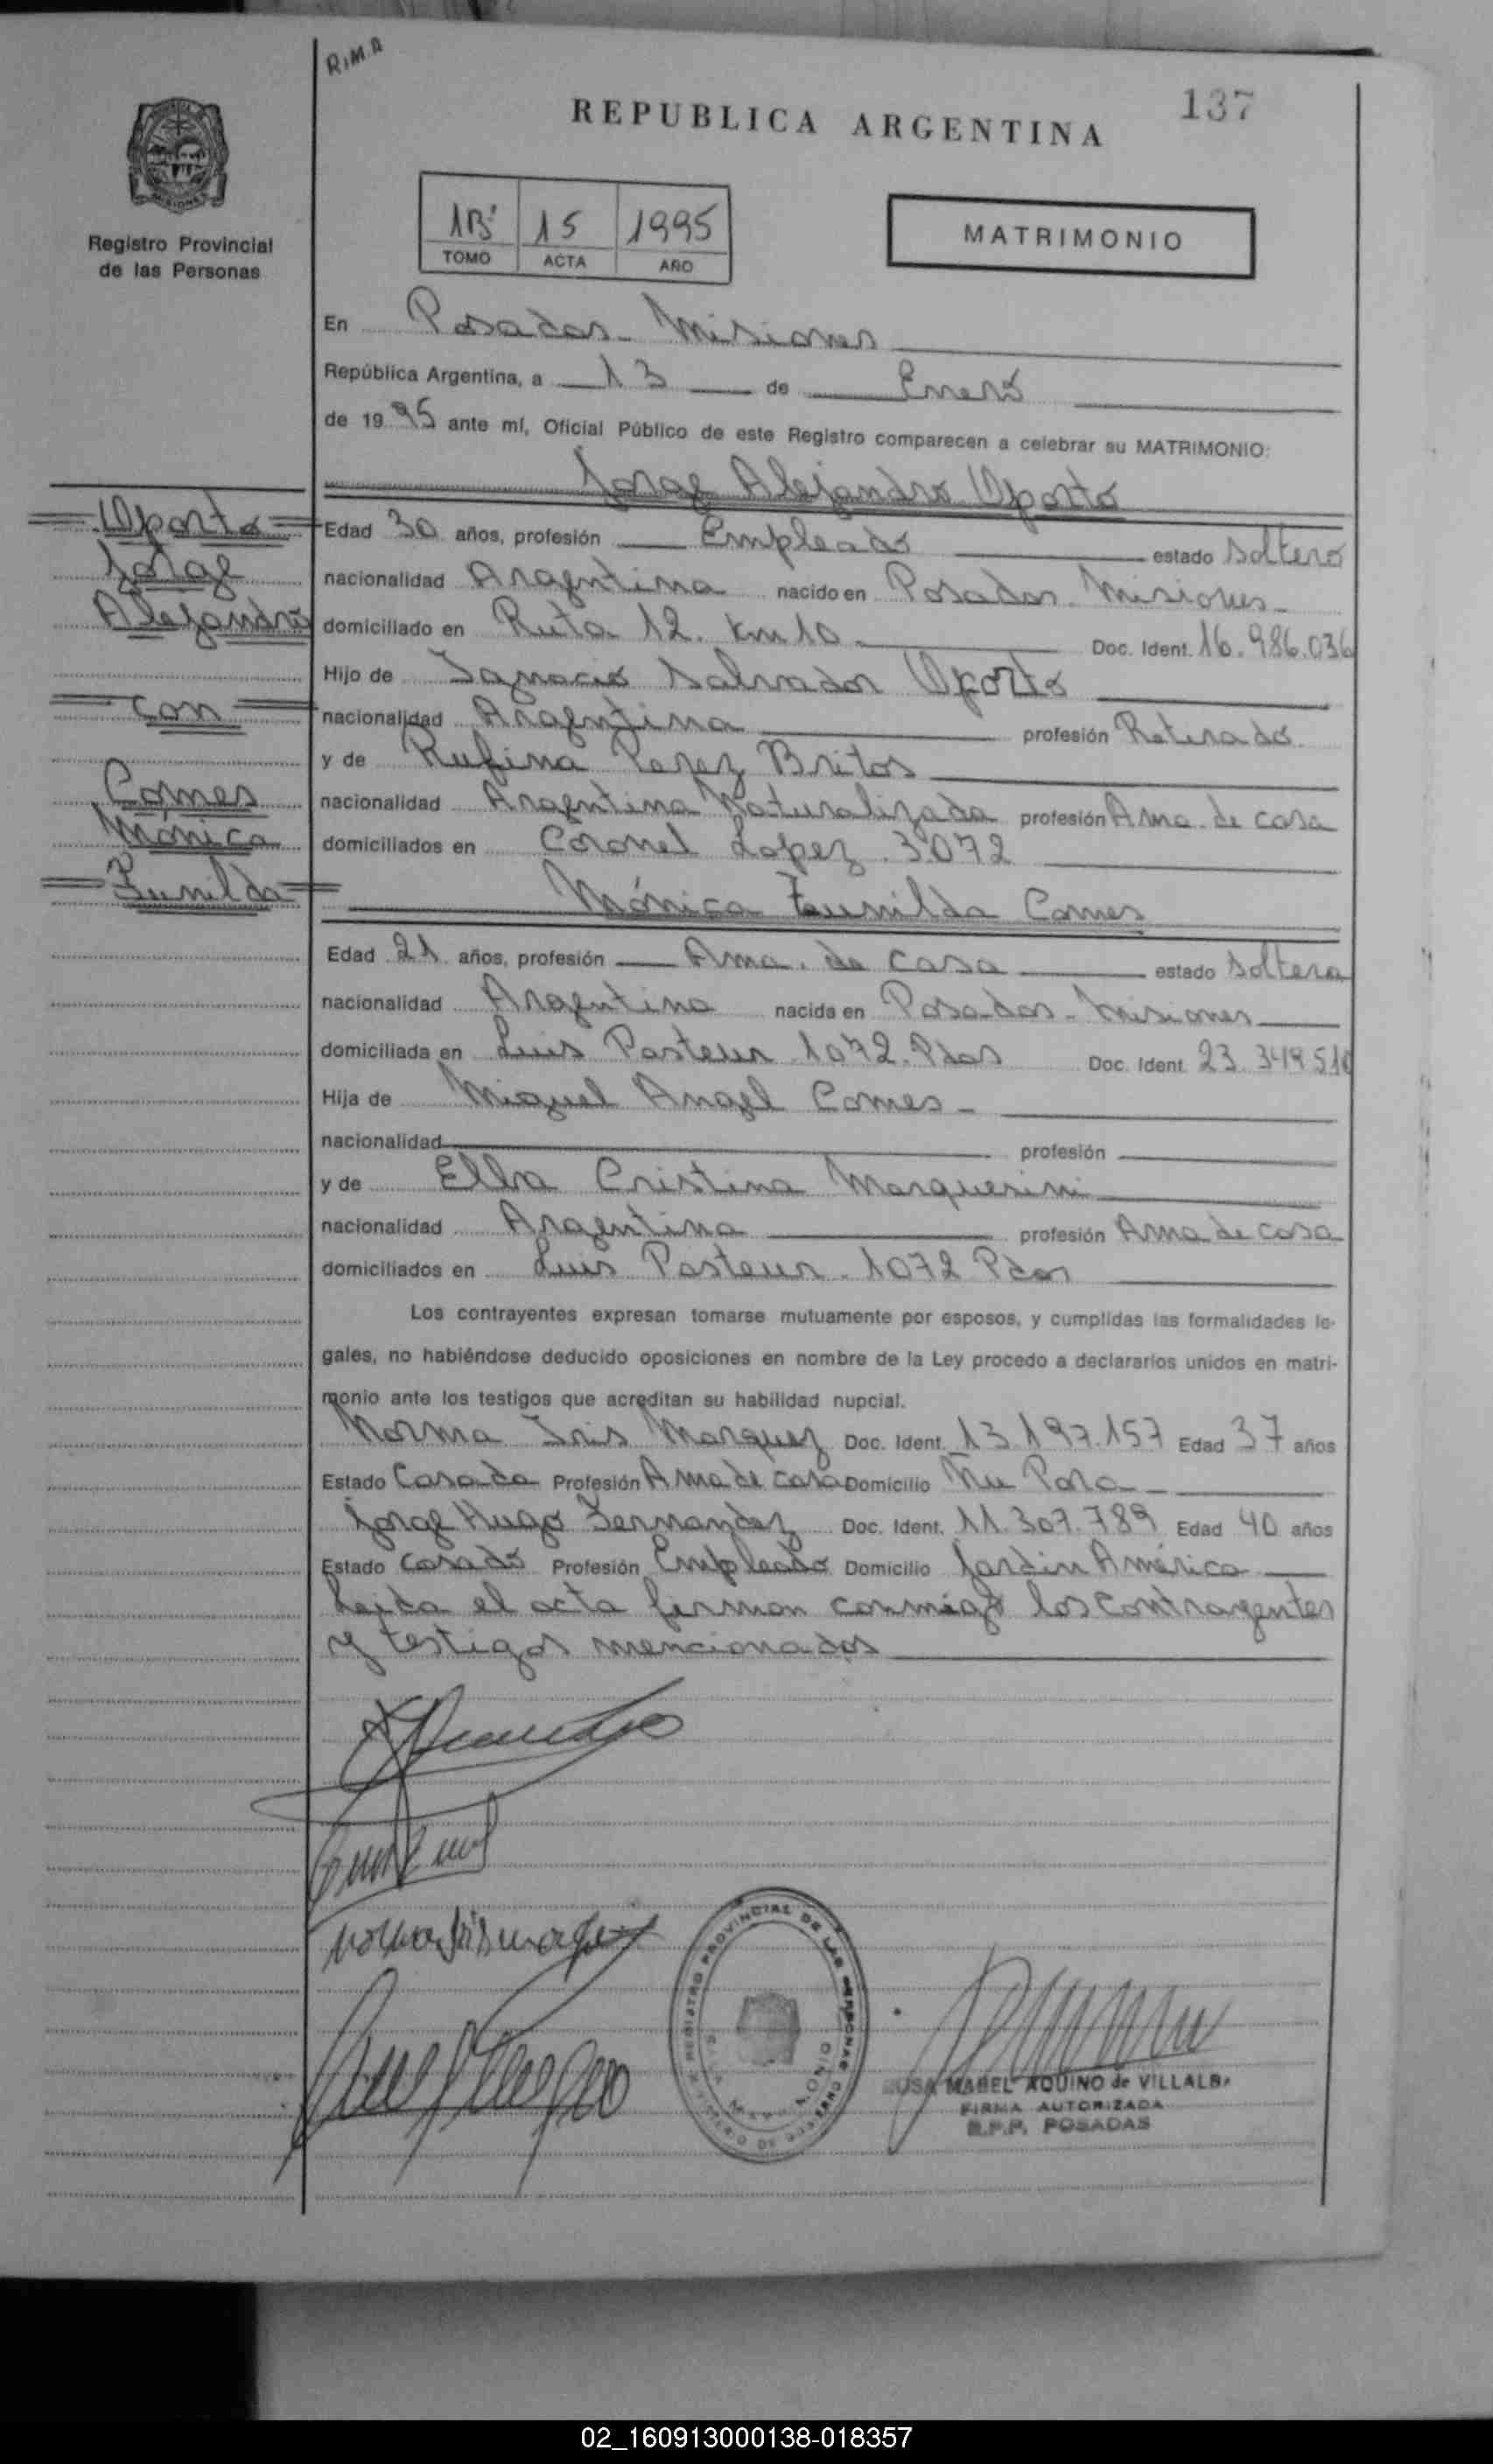 R.M.A
137
REPUBLICA ARGENTINA
MISIONES
Registro Provincial
de las Personas
1B' 15 1995
TOMO ACTA AÑO
MATRIMONIO
En Posadas - Misiones
República Argentina, a 13 de Enero
de 1995 ante mí, Oficial Público de este Registro comparecen a celebrar su MATRIMONIO:
Jorge Alejandro Oporto
Oporto
Jorge
Alejandro
con
Comes
Mónica
Zunilda
Edad 30 años, profesión Empleado estado Soltero
nacionalidad Argentina nacido en Posadas - Misiones -
domiciliado en Ruta 12. Km 10 Doc. Ident. 16.986.036
Hijo de Ignacio Salvador Oporto
nacionalidad Argentina profesión Retirado
y de Rufina Perez Britos
nacionalidad Argentina Naturalizada profesión Ama de casa
domiciliados en Coronel Lopez 3072
Mónica Zunilda Comes
Edad 21 años, profesión Ama de casa estado Soltera
nacionalidad Argentina nacida en Posadas - Misiones
domiciliada en Luis Pasteur 1072. Pdas Doc. Ident. 23.349.510
Hija de Miguel Angel Comes -
nacionalidad profesión
y de Elba Cristina Marquesini
nacionalidad Argentina profesión Ama de casa
domiciliados en Luis Pasteur 1072 Pdas
Los contrayentes expresan tomarse mutuamente por esposos, y cumplidas las formalidades le-
gales, no habiéndose deducido oposiciones en nombre de la Ley procedo a declararlos unidos en matri-
monio ante los testigos que acreditan su habilidad nupcial.
Norma Iris Marquez Doc. Ident. 13.197.157 Edad 37 años
Estado Casada Profesión Ama de casa Domicilio Ñu Pora -
Jorge Hugo Fernandez Doc. Ident. 11.307.789 Edad 40 años
Estado casado Profesión Empleado Domicilio Jardin América
Leida el acta firman conmigo los contrayentes
y testigos mencionados
REGISTRO PROVINCIAL DE LAS PERSONAS
ROSA MABEL AQUINO de VILLALBA
FIRMA AUTORIZADA
R.P.P. POSADAS
02_160913000138-018357